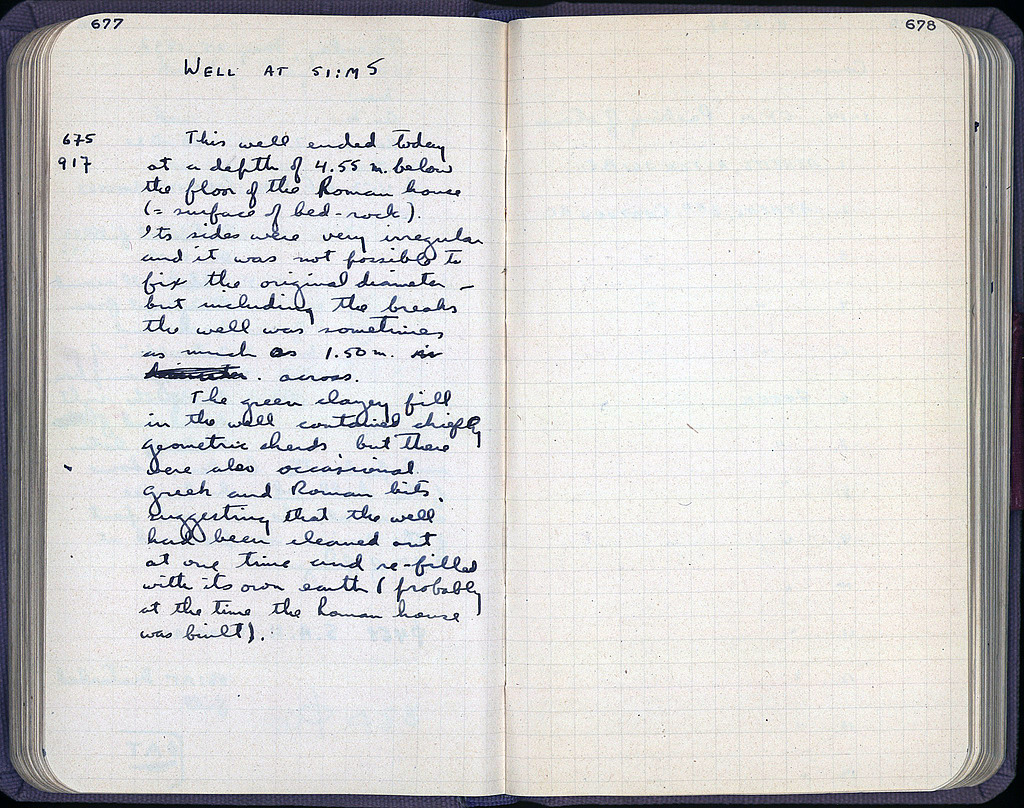 677
678
WELL AT 51:ΜS
675
917
This well ended today
at a depth of 4.55 m. below
the floor of the Roman house
(= surface of bed-rock).
Its sides were very irregular
and it was not possible to
fix the original diameter –
but including the breaks
the well was sometimes
as much as 1.50 m. in
across.
The green clayey fill
in the well contained chiefly
geometric sherds, but there
were also occasional
Greek and Roman bits,
suggesting that the well
had been cleaned out
at one time and re-filled
with its own earth (probably
at the time the Roman house
was built).